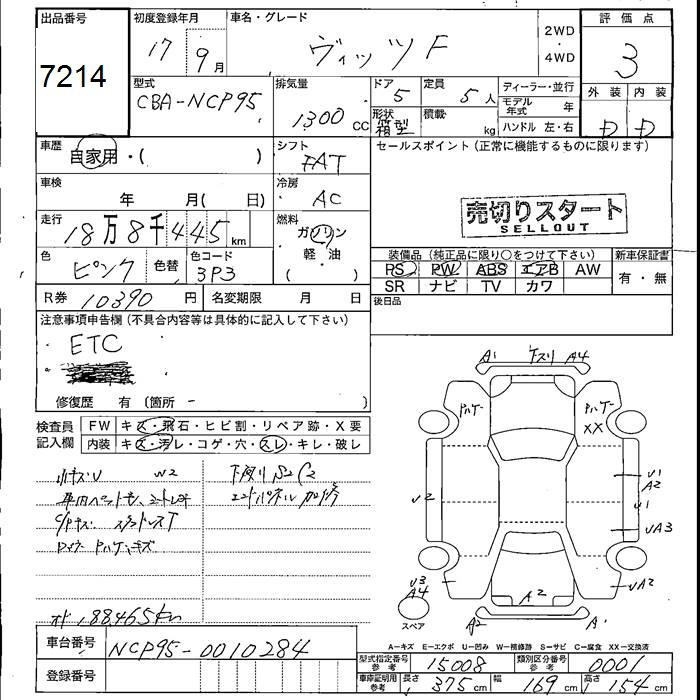 出品番号 初度登録年月 車名・グレード 評価点
7214 17 9月 ヴィッツF 2WD・4WD 3
型式 排気量 ドア 定員 ディーラー・並行 外装 内装
CBA-NCP95 1300 CC 5 5人 モデル年式 年 D D
形状 箱型 積載 kg ハンドル 左・右
車歴 シフト セールスポイント (正常に機能するものに限ります)
自家用・( ) FAT
車検 冷房
年 月( 日) AC
売切りスタート
SELLOUT
走行 燃料
18万8千445km ガソリン 軽・油 ( )
色 ピンク 色替 色コード 3P3
装備品 (純正品に限り○をつけて下さい) 新車保証書
PS PW ABS エアB AW 有・無
SR ナビ TV カワ
R券 10390円 名変期限 月 日 後日品
注意事項申告欄 (不具合内容等は具体的に記入して下さい)
ETC
修復歴 有 (箇所 - )
A1 下スリ A4
検査員記入欄 FW キズ・飛石・ヒビ割・リペア跡・X要
内装 キズ・汚レ・コゲ・穴・スレ・キレ・破レ
XX
U2
U1
A2
U1
UA3
U3
A4
UA2
A2
スペア
A2 A1
オド 188465km
車台番号 NCP95-0010284
登録番号
A-キズ E-エクボ U-凹み W-補修跡 S-サビ C-腐食 XX-交換済
型式指定番号 参考 15008 類別区分番号 参考 0001
車庫証明用 参考 長さ 375cm 幅 169cm 高さ 154cm